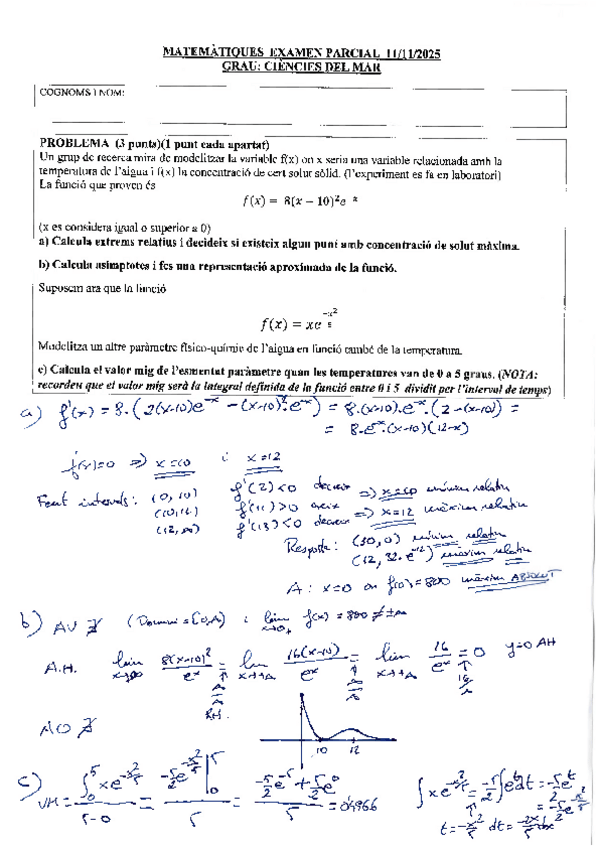 MATEMÀTIQUES EXAMEN PARCIAL 11/11/2025
GRAU: CIÈNCIES DEL MAR
COGNOMS I NOM:
PROBLEMA (3 punts)(1 punt cada apartat)
Un grup de recerca mira de modelitzar la variable f(x) on x seria una variable relacionada amb la
temperatura de l'aigua i f(x) la concentració de cert solut sòlid. (l'experiment es fa en laboratori)
La funció que proven és
f(x) = 8(x − 10)²e⁻ˣ
(x es considera igual o superior a 0)
a) Calcula extrems relatius i decideix si existeix algun punt amb concentració de solut màxima.
b) Calcula asímptotes i fes una representació aproximada de la funció.
Suposem ara que la funció
f(x) = xe^(-x²/5)
Modelitza un altre paràmetre físico-químic de l'aigua en funció també de la temperatura.
c) Calcula el valor mig de l'esmentat paràmetre quan les temperatures van de 0 a 5 graus. (NOTA:
recordeu que el valor mig serà la integral definida de la funció entre 0 i 5 dividit per l'interval de temps)
a) f'(x) = 8·(2(x-10)e^-x − (x-10)²·e^-x) = 8·(x-10)·e^-x·(2-(x-10)) =
= 8·e^-x·(x-10)(12-x)
f'(x)=0 => x=10 i x=12
Fent intervals: (0,10) f'(2)<0 decreix => x=10 mínim relatiu
f'(11)>0 creix => x=12 màxim relatiu
(12,∞) f'(13)<0 decreix
Resposta: (10,0) mínim relatiu
(12, 32·e^-12) màxim relatiu
A: x=0 on f(0)=800 màxim ABSOLUT
b) AV ∄ i lim x→0+ f(x) = 800 ≠ ±∞
A.H. lim x→∞ 8(x-10)²/e^x = lim x→+∞ 16(x-10)/e^x = lim x→+∞ 16/e^x = 0 y=0 AH
AO ∄
10 12
c) VM = ∫₀⁵ xe^(-x²/5) / 5-0 = -5/2 e^(-x²/5) |₀⁵ / 5 = -5/2 e^-5 + 5/2 e^0 / 5 = 0'4966
∫xe^(-x²/5) = -5/2 ∫e^t dt = -5/2 e^t
= -5/2 e^(-x²/5)
t = -x²/5 dt = -2x/5 dx